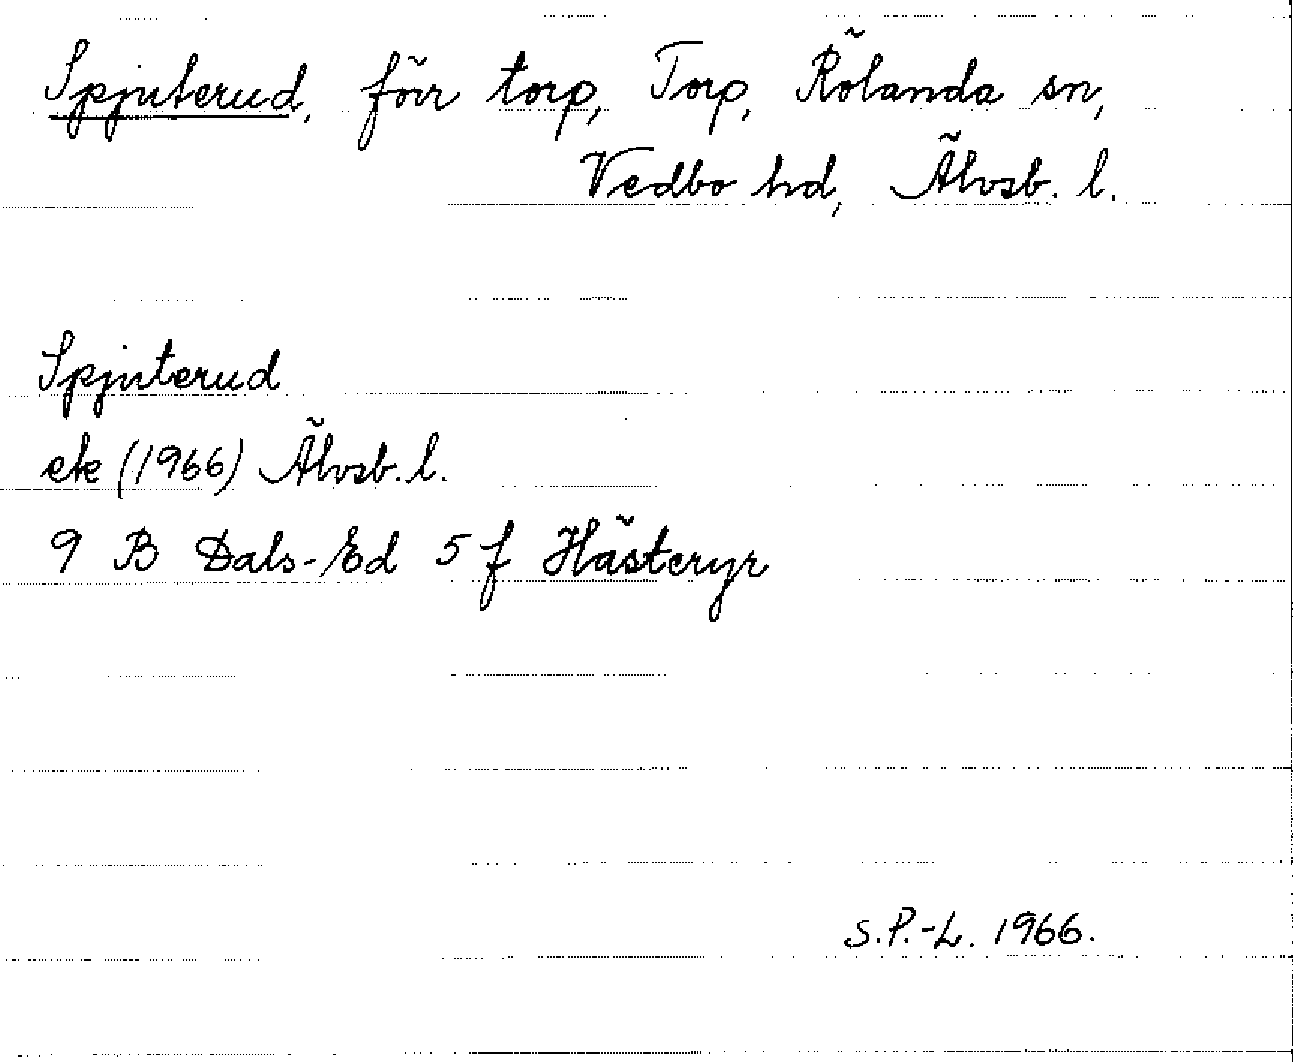 Spjuterud, förr torp, Torp, Rölanda sn,
Vedbo hd, Älvsb. l.
Spjuterud
ek (1966) Älvsb. l.
9 B Dals-Ed 5 f Hästeryr
S.P.-L. 1966.